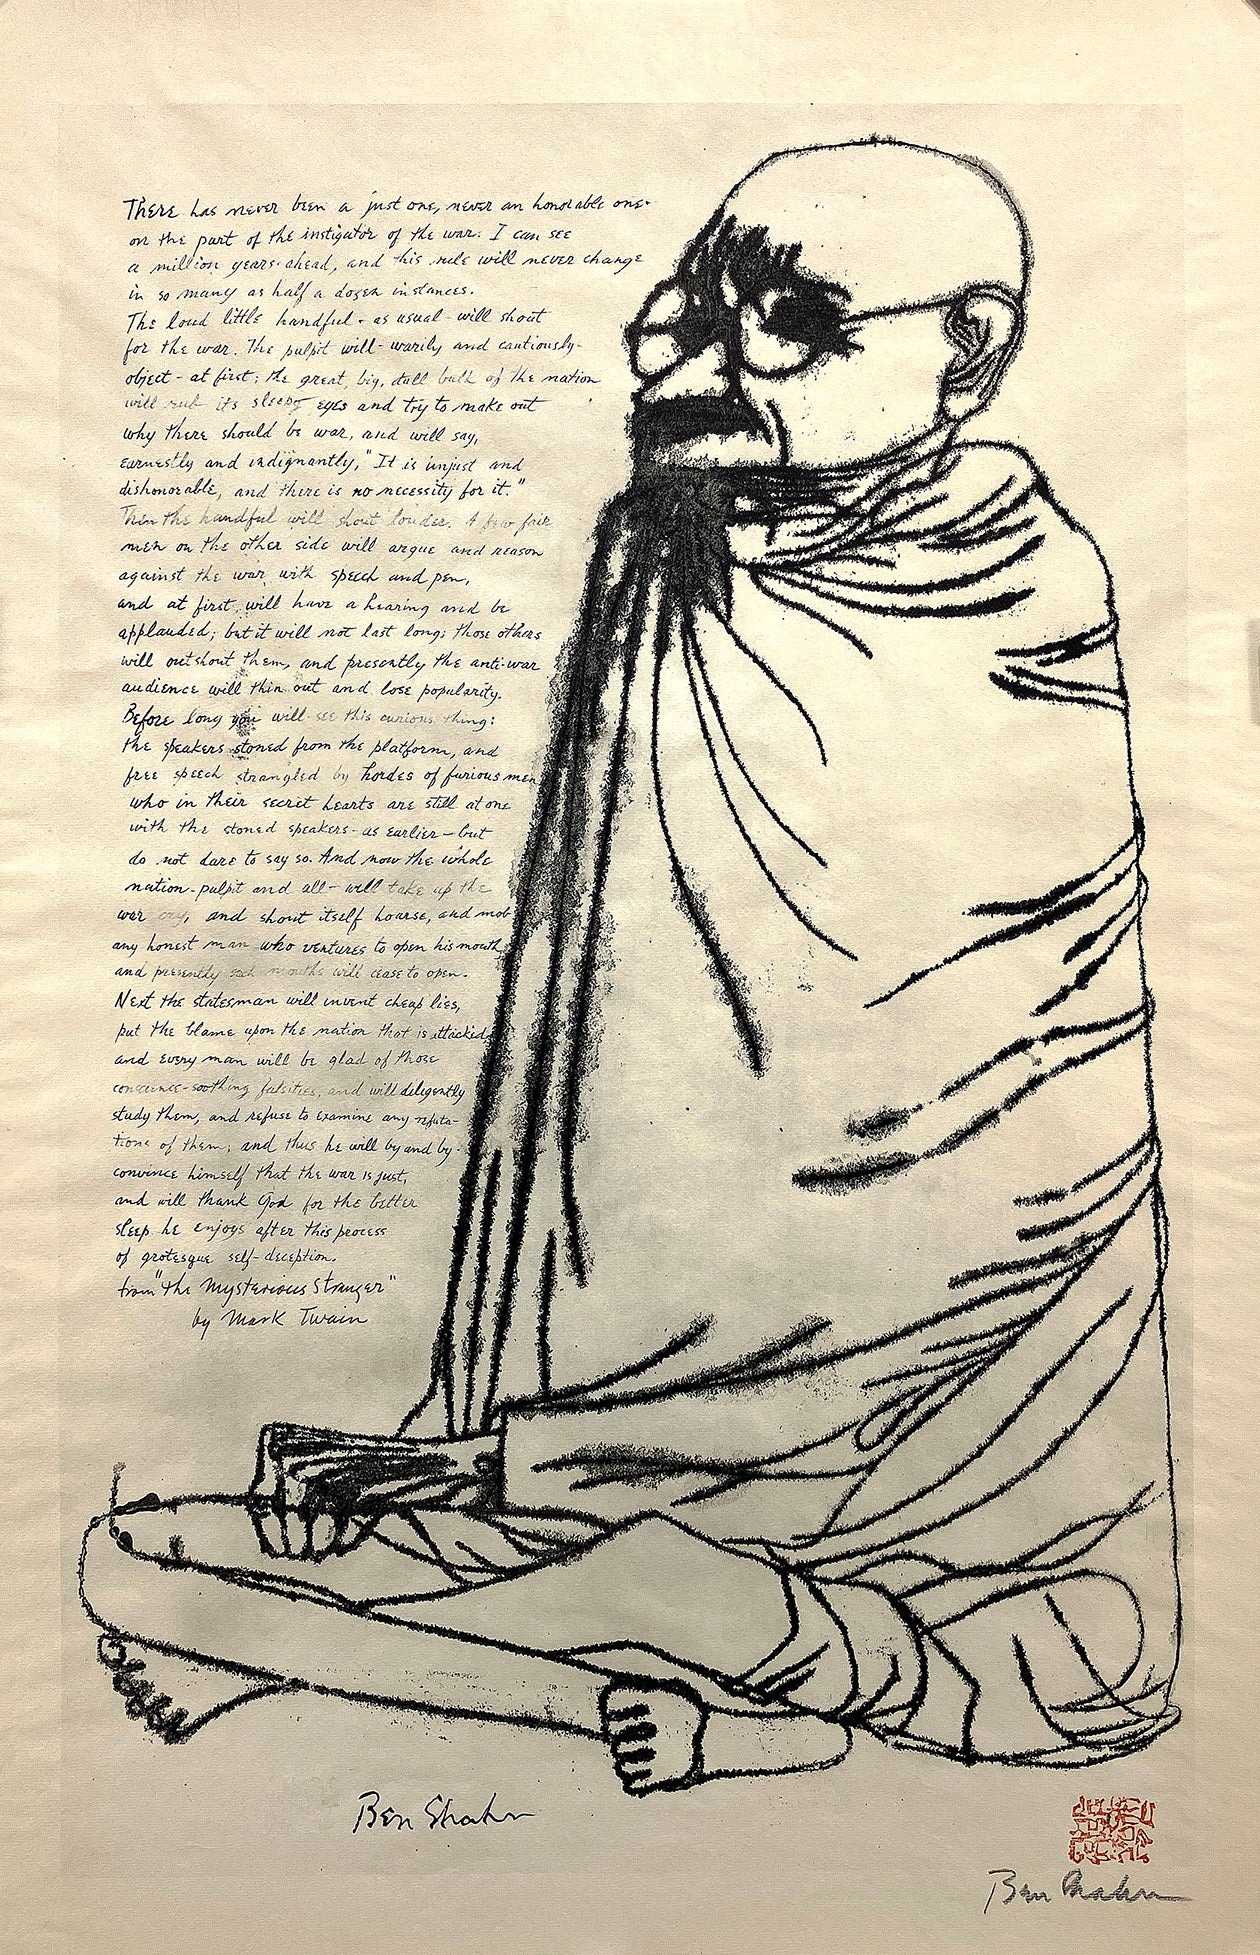 There has never been a just one, never an honorable one-
on the part of the instigator of the war. I can see
a million years ahead, and this rule will never change
in so many as half a dozen instances.
The loud little handful - as usual - will shout
for the war. The pulpit will - warily and cautiously -
object - at first; the great, big, dull bulk of the nation
will rub its sleepy eyes and try to make out
why there should be war, and will say,
earnestly and indignantly, "It is unjust and
dishonorable, and there is no necessity for it."
Then the handful will shout louder. A few fair
men on the other side will argue and reason
against the war with speech and pen,
and at first will have a hearing and be
applauded; but it will not last long; those others
will outshout them, and presently the anti-war
audience will thin out and lose popularity.
Before long you will see this curious thing:
the speakers stoned from the platform, and
free speech strangled by hordes of furious men
who in their secret hearts are still at one
with the stoned speakers - as earlier - but
do not dare to say so. And now the whole
nation - pulpit and all - will take up the
war cry, and shout itself hoarse, and mob
any honest man who ventures to open his mouth
and presently such mouths will cease to open.
Next the statesman will invent cheap lies,
put the blame upon the nation that is attacked,
and every man will be glad of those
conscience-soothing falsities, and will deligently
study them, and refuse to examine any refuta-
tions of them; and thus he will by and by
convince himself that the war is just,
and will thank God for the better
sleep he enjoys after this process
of grotesque self-deception.
from "The Mysterious Stranger"
by Mark Twain
Ben Shahn
Ben Shahn